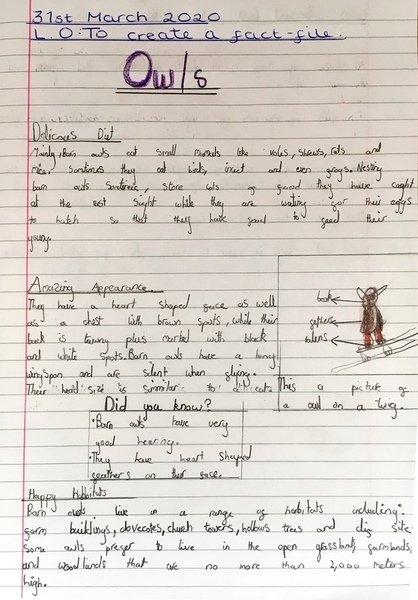 31st March 2020
L.O: To create a fact-file.
Owls
Delicous Diet
Mainly, Barn owls eat small mamals like voles, shrews, rats and
mice. Sometimes they eat birds, insect and even frogs. Nesting
barn owls sometimes, store lots of food they have caught
at the nest sight while they are waiting for their eggs
to hatch so that they have food to feed their
young.
Amazing Appearance
They have a heart shaped face as well
as a chest with brown spots, while their
back is tawny plus marked with black
and white spots. Barn owls have a long
wingspan and are silent when flying.
Their size is simmilar to a cat.
beak
talens
This a picture of
a owl on a twig.
Did you know?
• Barn owls have very
good hearing.
• They have heart shaped
feathers on their face.
Happy Habbitats
Barn owls live in a range of habitats including:
farm buildings, dovecotes, church towers, hollows trees and site
Some owls prefer to live in the open grassland, farmlands,
and woodlands that are no more than 2,000 meters
high.